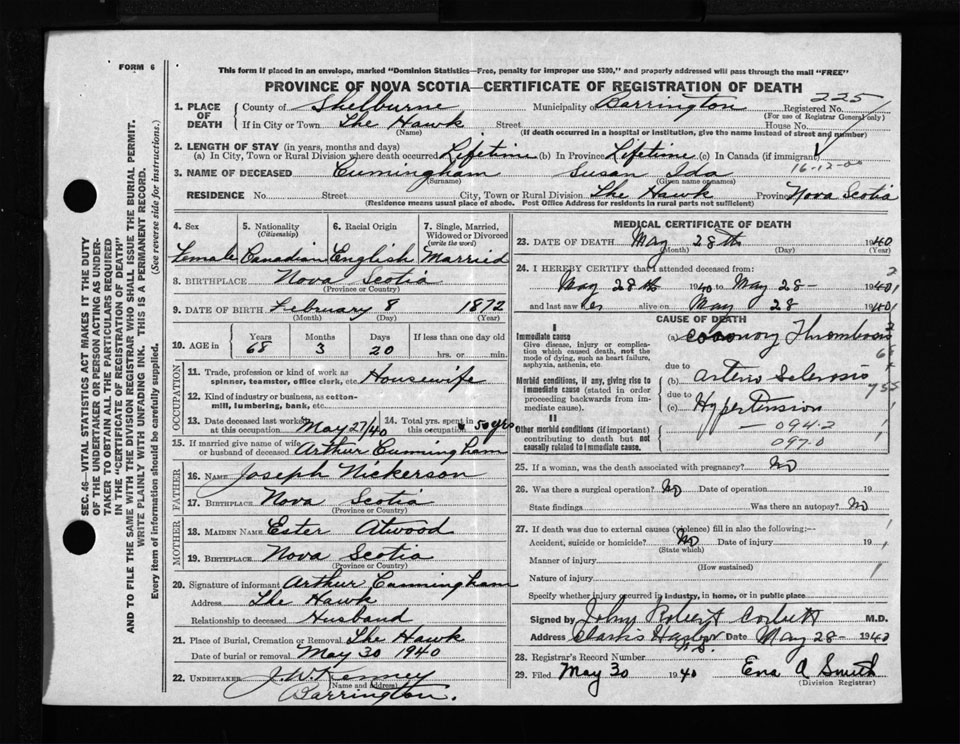 FORM 6
This form if placed in an envelope, marked "Dominion Statistics—Free, penalty for improper use $300," and properly addressed will pass through the mail "FREE"
PROVINCE OF NOVA SCOTIA—CERTIFICATE OF REGISTRATION OF DEATH
SEC. 46—VITAL STATISTICS ACT MAKES IT THE DUTY
OF THE UNDERTAKER OR PERSON ACTING AS UNDER-
TAKER TO OBTAIN ALL THE PARTICULARS REQUIRED
IN THE "CERTIFICATE OF REGISTRATION OF DEATH"
AND TO FILE THE SAME WITH THE DIVISION REGISTRAR WHO SHALL ISSUE THE BURIAL PERMIT.
WRITE PLAINLY WITH UNFADING INK. THIS IS A PERMANENT RECORD.
Every item of information should be carefully supplied. (See reverse side for instructions.)
1. PLACE OF DEATH
County of Shelburne Municipality of Barrington Registered No. 225
(For use of Registrar General only)
If in City or Town The Hawk Street House No.
(Name) (If death occurred in a hospital or institution, give the name instead of street and number)
2. LENGTH OF STAY (in years, months and days)
(a) In City, Town or Rural Division where death occurred Lifetime (b) In Province Lifetime (c) In Canada (if immigrant)
16-12-00
3. NAME OF DECEASED Cuningham Susan Ida
(Surname) (Given name or names)
RESIDENCE No. Street City, Town or Rural Division The Hawk Province Nova Scotia
(Residence means usual place of abode. Post Office Address for residents in rural parts not sufficient)
4. Sex 5. Nationality (Citizenship) 6. Racial Origin 7. Single, Married, Widowed or Divorced (write the word)
Female Canadian English Married
8. BIRTHPLACE Nova Scotia
(Province or Country)
9. DATE OF BIRTH February 8 1872
(Month) (Day) (Year)
10. AGE in Years Months Days If less than one day old
68 3 20 hrs. or min.
OCCUPATION
11. Trade, profession or kind of work as spinner, teamster, office clerk, etc. Housewife
12. Kind of industry or business, as cotton-mill, lumbering, bank, etc.
13. Date deceased last worked at this occupation May 27/40 14. Total yrs. spent in this occupation 50 yrs
15. If married give name of wife or husband of deceased Arthur Cunningham
FATHER
16. Name Joseph Nickerson
17. BIRTHPLACE Nova Scotia
(Province or Country)
MOTHER
18. MAIDEN NAME Ester Atwood
19. BIRTHPLACE Nova Scotia
(Province or Country)
20. Signature of informant Arthur Cunningham
Address The Hawk
Relationship to deceased Husband
21. Place of Burial, Cremation or Removal The Hawk
Date of burial or removal May 30 1940
22. UNDERTAKER J.W. Kenney
(Name and Address)
Barrington.
MEDICAL CERTIFICATE OF DEATH
23. DATE OF DEATH May 28th 1940
(Month) (Day) (Year)
24. I HEREBY CERTIFY that I attended deceased from:
May 28th 1940 to May 28- 1940
and last saw her alive on May 28 1940
CAUSE OF DEATH
I
Immediate cause
Give disease, injury or complication which caused death, not the mode of dying, such as heart failure, asphyxia, asthenia, etc.
(a) Coronary Thrombosis
due to
Morbid conditions, if any, giving rise to immediate cause (stated in order proceeding backwards from immediate cause).
(b) Arterio Sclerosis
due to
(c) Hypertension
II
Other morbid conditions (if important) contributing to death but not causally related to immediate cause.
094.2
097.0
25. If a woman, was the death associated with pregnancy? No
26. Was there a surgical operation? No Date of operation 19
State findings Was there an autopsy? No
27. If death was due to external causes (violence) fill in also the following:—
Accident, suicide or homicide? No Date of injury 19
(State which)
Manner of injury
(How sustained)
Nature of injury
Specify whether injury occurred in industry, in home, or in public place
Signed by John Robert Corbett M.D.
Address Clarks Harbor N.S. Date May 28- 1940
28. Registrar's Record Number
29. Filed May 30 1940 Ena A Smith
(Division Registrar)